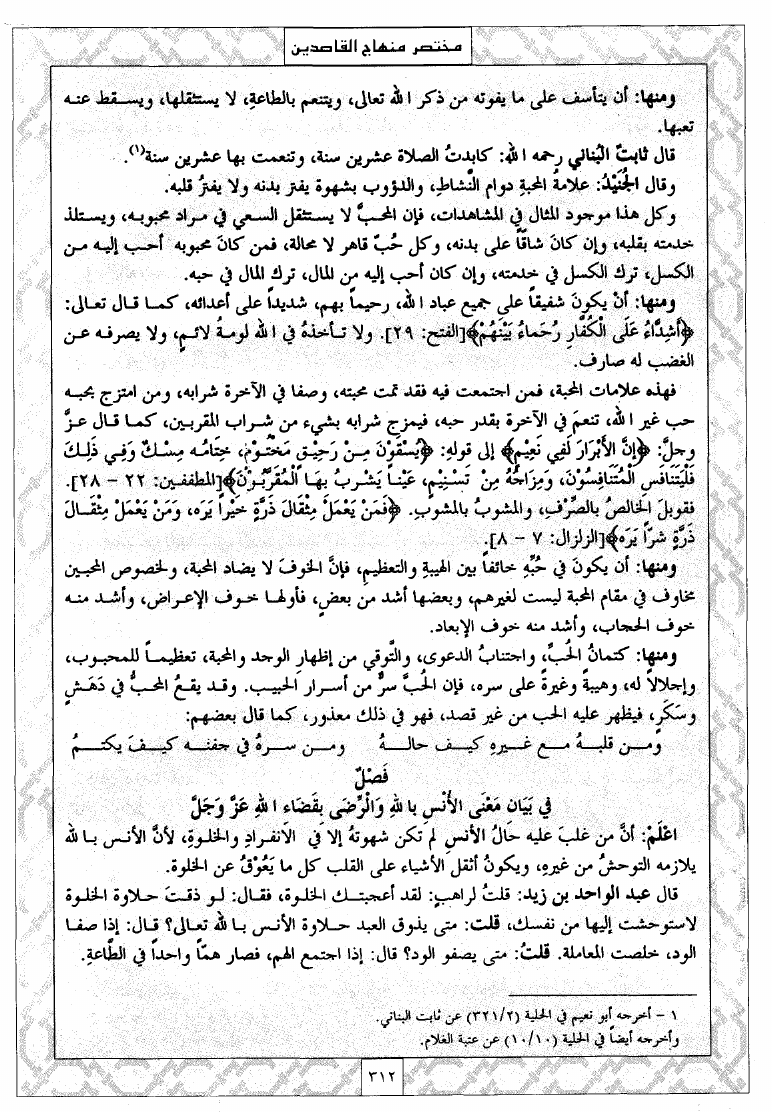 مختصر منهاج القاصدين
ومنها: أن يتأسف على ما يفوته من ذكر الله تعالى، ويتنعم بالطاعةِ، لا يستثقلها، ويسقط عنه
تعبها.
قال ثابتٌ البُناني رحمه الله: كابدتُ الصلاة عشرين سنة، وتنعمت بها عشرين سنة(١).
وقال الجُنَيْدُ: علامةُ المحبةِ دوام النَّشاطِ، والدؤوب بشهوة يفتر بدنه ولا يفترُ قلبه.
وكل هذا موجود المثال في المشاهدات، فإن المحبَّ لا يستثقل السعي في مراد محبوبه، ويستلذ
خدمته بقلبه، وإن كانَ شاقّاً على بدنه، وكل حُبّ قاهر لا محالة، فمن كانَ محبوبه أحب إليه من
الكسل، ترك الكسل في خدمته، وإن كان أحب إليه من المال، ترك المال في حبه.
ومنها: أنْ يكونَ شفيقاً على جميع عباد الله، رحيماً بهم، شديداً على أعدائه، كما قال تعالى:
﴿أَشِدَّاءُ عَلَى الْكُفَّارِ رُحَمَاءُ بَيْنَهُمْ﴾[الفتح: ٢٩]. ولا تأخذهُ في الله لومةُ لائمٍ، ولا يصرفه عن
الغضب له صارف.
فهذه علامات المحبة، فمن اجتمعت فيه فقد تمت محبته، وصفا في الآخرة شرابه، ومن امتزج بحبه
حب غير الله، تنعمَ في الآخرة بقدر حبه، فيمزج شرابه بشيء من شراب المقربين، كما قال عزَّ
وجلَّ: ﴿إِنَّ الأَبْرَارَ لَفِي نَعِيمٍ﴾ إلى قوله: ﴿يُسْقَوْنَ مِنْ رَحِيقٍ مَخْتُومٍ، خِتَامُه مِسْكٌ وَفِي ذَلِكَ
فَلْيَتَنَافَسِ الْمُتَنَافِسُونَ، وَمِزَاجُهُ مِنْ تَسْنِيمٍ، عَيْناً يَشْرَبُ بِهَا الْمُقَرَّبُونَ﴾[المطففين: ٢٢ – ٢٨].
فقوبلَ الخالصُ بالصِّرْفِ، والمشوبُ بالمشوبِ. ﴿فَمَنْ يَعْمَلْ مِثْقَالَ ذَرَّةٍ خَيْراً يَرَه، وَمَنْ يَعْمَلْ مِثْقَالَ
ذَرَّةٍ شراً يَرَه﴾[الزلزال: ٧ – ٨].
ومنها: أن يكونَ في حُبِّهِ خائفاً بين الهيبةِ والتعظيمِ، فإنَّ الخوفَ لا يضاد المحبة، ولخصوص المحبين
مخاوف في مقام المحبة ليست لغيرهم، وبعضها أشد من بعضٍ، فأولها خوف الإعراض، وأشد منه
خوف الحجاب، وأشد منه خوف الإبعاد.
ومنها: كتمانُ الحُبِّ، واجتنابُ الدعوى، والتَّوقي من إظهار الوجد والمحبة، تعظيماً للمحبوب،
وإجلالاً له، وهيبةً وغيرةً على سره، فإن الحُبَّ سرٌّ من أسرار الحبيب. وقد يقعُ المحبُّ في دَهَشٍ
وسَكَرٍ، فيظهر عليه الحب من غير قصد، فهو في ذلك معذور، كما قال بعضهم:
ومن قلبهُ مع غيرِهِ كيف حالهُ ومن سرهُ في جفنه كيفَ يكتمُ
فَصْلٌ
في بَيَانِ مَعْنَى الأُنْسِ بالله وَالرِّضَى بِقَضَاءِ اللهِ عَزَّ وَجَلَّ
اعْلَمْ: أنَّ من غلبَ عليه حَالُ الأنسِ لم تكن شهوتهُ إلا في الانفرادِ والخلوةِ، لأنَّ الأنس بالله
يلازمه التوحشُ من غيرهِ، ويكونُ أثقل الأشياء على القلب كل ما يَعُوْقُ عن الخلوة.
قال عبد الواحد بن زيد: قلتُ لراهبٍ: لقد أعجبتك الخلوة، فقال: لو ذقتَ حلاوة الخلوة
لاستوحشت إليها من نفسك، قلت: متى يذوق العبد حلاوة الأنس بالله تعالى؟ قال: إذا صفا
الود، خلصت المعاملة. قلتُ: متى يصفو الود؟ قال: إذا اجتمع الهم، فصار همّاً واحداً في الطَّاعةِ.
١ – أخرجه أبو نعيم في الحلية (٣٢١/٢) عن ثابت البناني.
وأخرجه أيضاً في الحلية (١٠/١٠) عن عتبة الغلام.
٣١٢